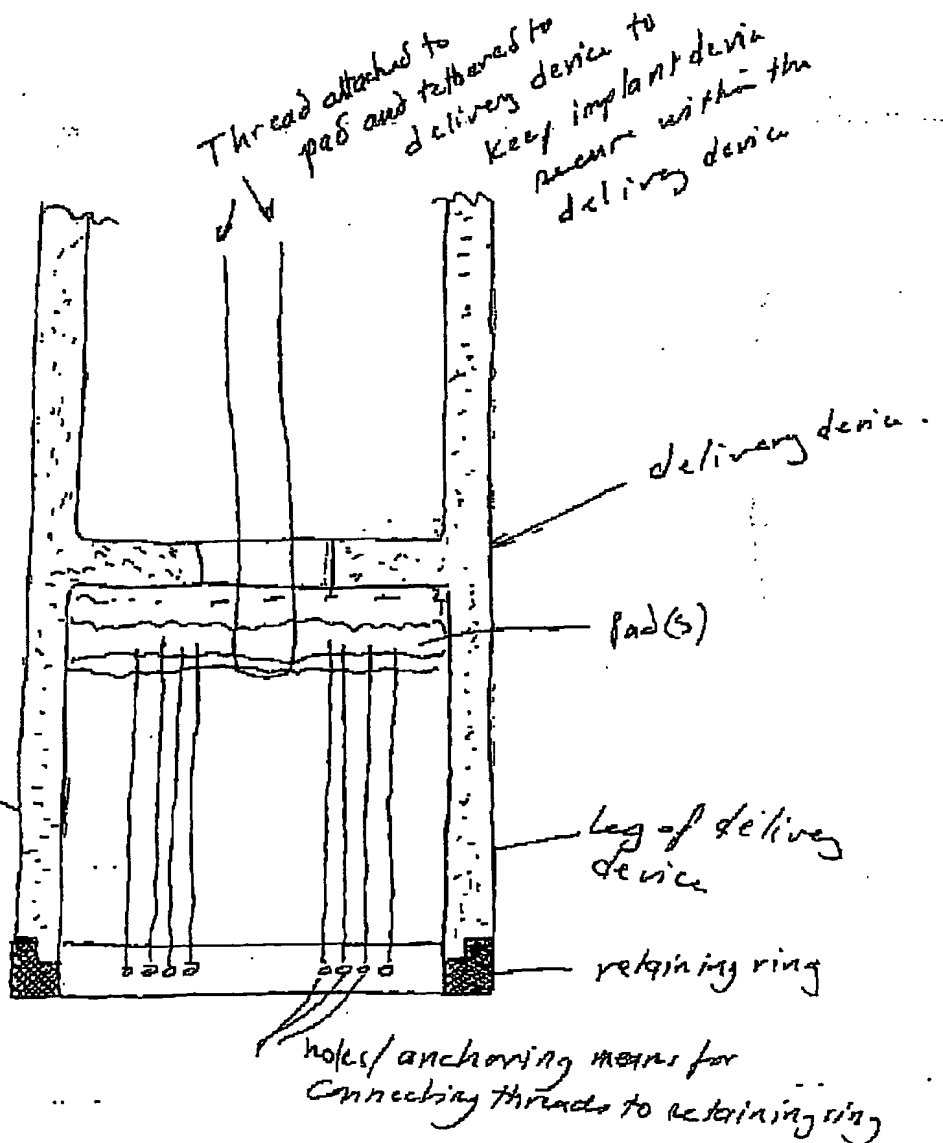 Thread attached to
pad and tethered to
delivery device to
keep implant device
secure within the
delivery device
delivery device.
pad(s)
Leg of delivery
device
retaining ring
holes/anchoring means for
Connecting threads to retaining ring